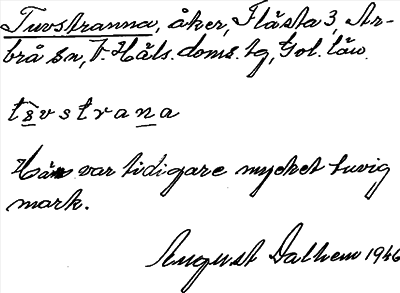 Tuvstranna, åker, Flästa 3, Ar-
brå sn, V. Häls. doms. tg, Gol. län.
tŝvstrana
Här var tidigare mycket tuvig
mark.
August Dalhem 1946